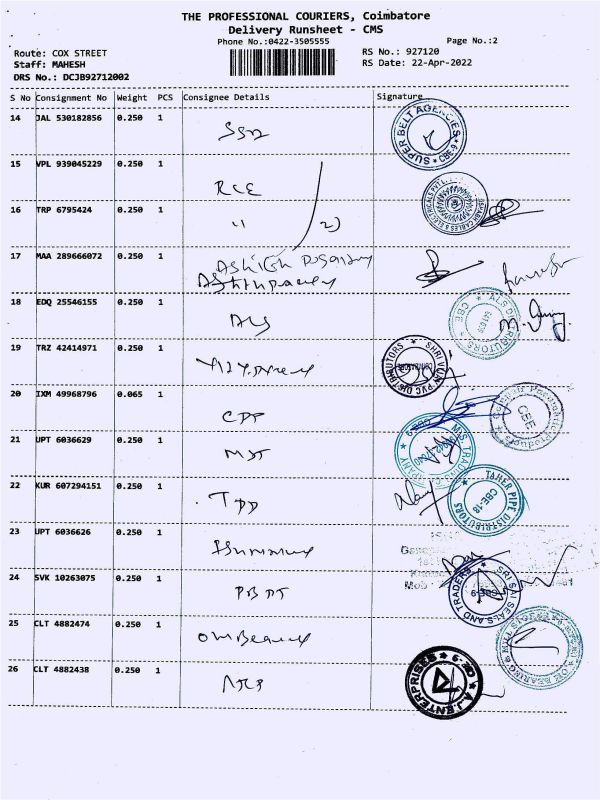 THE PROFESSIONAL COURIERS, Coimbatore
Delivery Runsheet - CMS
Phone No.:0422-3505555
Page No.:2
Route: COX STREET
RS No.: 927120
Staff: MAHESH
RS Date: 22-Apr-2022
DRS No.: DCJB92712002
S No Consignment No Weight PCS Consignee Details Signature
14 JAL 530182856 0.250 1
SUPER BELT AGENCIES CBE-9
15 VPL 939045229 0.250 1
RCE
16 TRP 6795424 0.250 1 "
17 MAA 289666072 0.250 1
18 EDQ 25546155 0.250 1
ALS
ALS DISTRIBUTORS CBE
19 TRZ 42414971 0.250 1
SHRI VIJAY PVC DISTRIBUTORS
20 IXM 49968796 0.065 1
CPP
CEE
21 UPT 6036629 0.250 1
MST
M.S. TRADING COMPANY
22 KUR 607294151 0.250 1
TPD
TAHER PIPE DISTRIBUTORS CBE-18
23 UPT 6036626 0.250 1
24 SVK 10263075 0.250 1
SRI SAI SEALS AND TRADERS
25 CLT 4882474 0.250 1
Om Bearing
OM BEARING & MILL STORES
26 CLT 4882438 0.250 1
A.J. ENTERPRISES